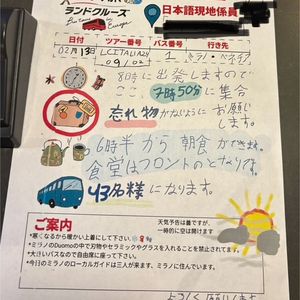 ランドクルーズ
日本語現地係員
日付 ツアー番号 バス番号 行き先
02月13日 LCITALIA24 1
09/02
8時に出発しますので
ここ、7時50分に集合
忘れ物がないようにお願い
します。
6時半から朝食ができます。
食堂はフロントのとなりです。
43名様になります。
ご案内
天気予報は曇ですが、
一時的に空は開けます
*寒くなるから暖かい上着にして下さい。
*ミラノのDuomoの中で刃物やセラミックやグラスを入れることを禁止されてます。
*大きいバスなので自由席に座って下さい。
*今日のミラノのローカルガイドは三人が来ます、ミラノに住んでいます。
よろしくお願いします